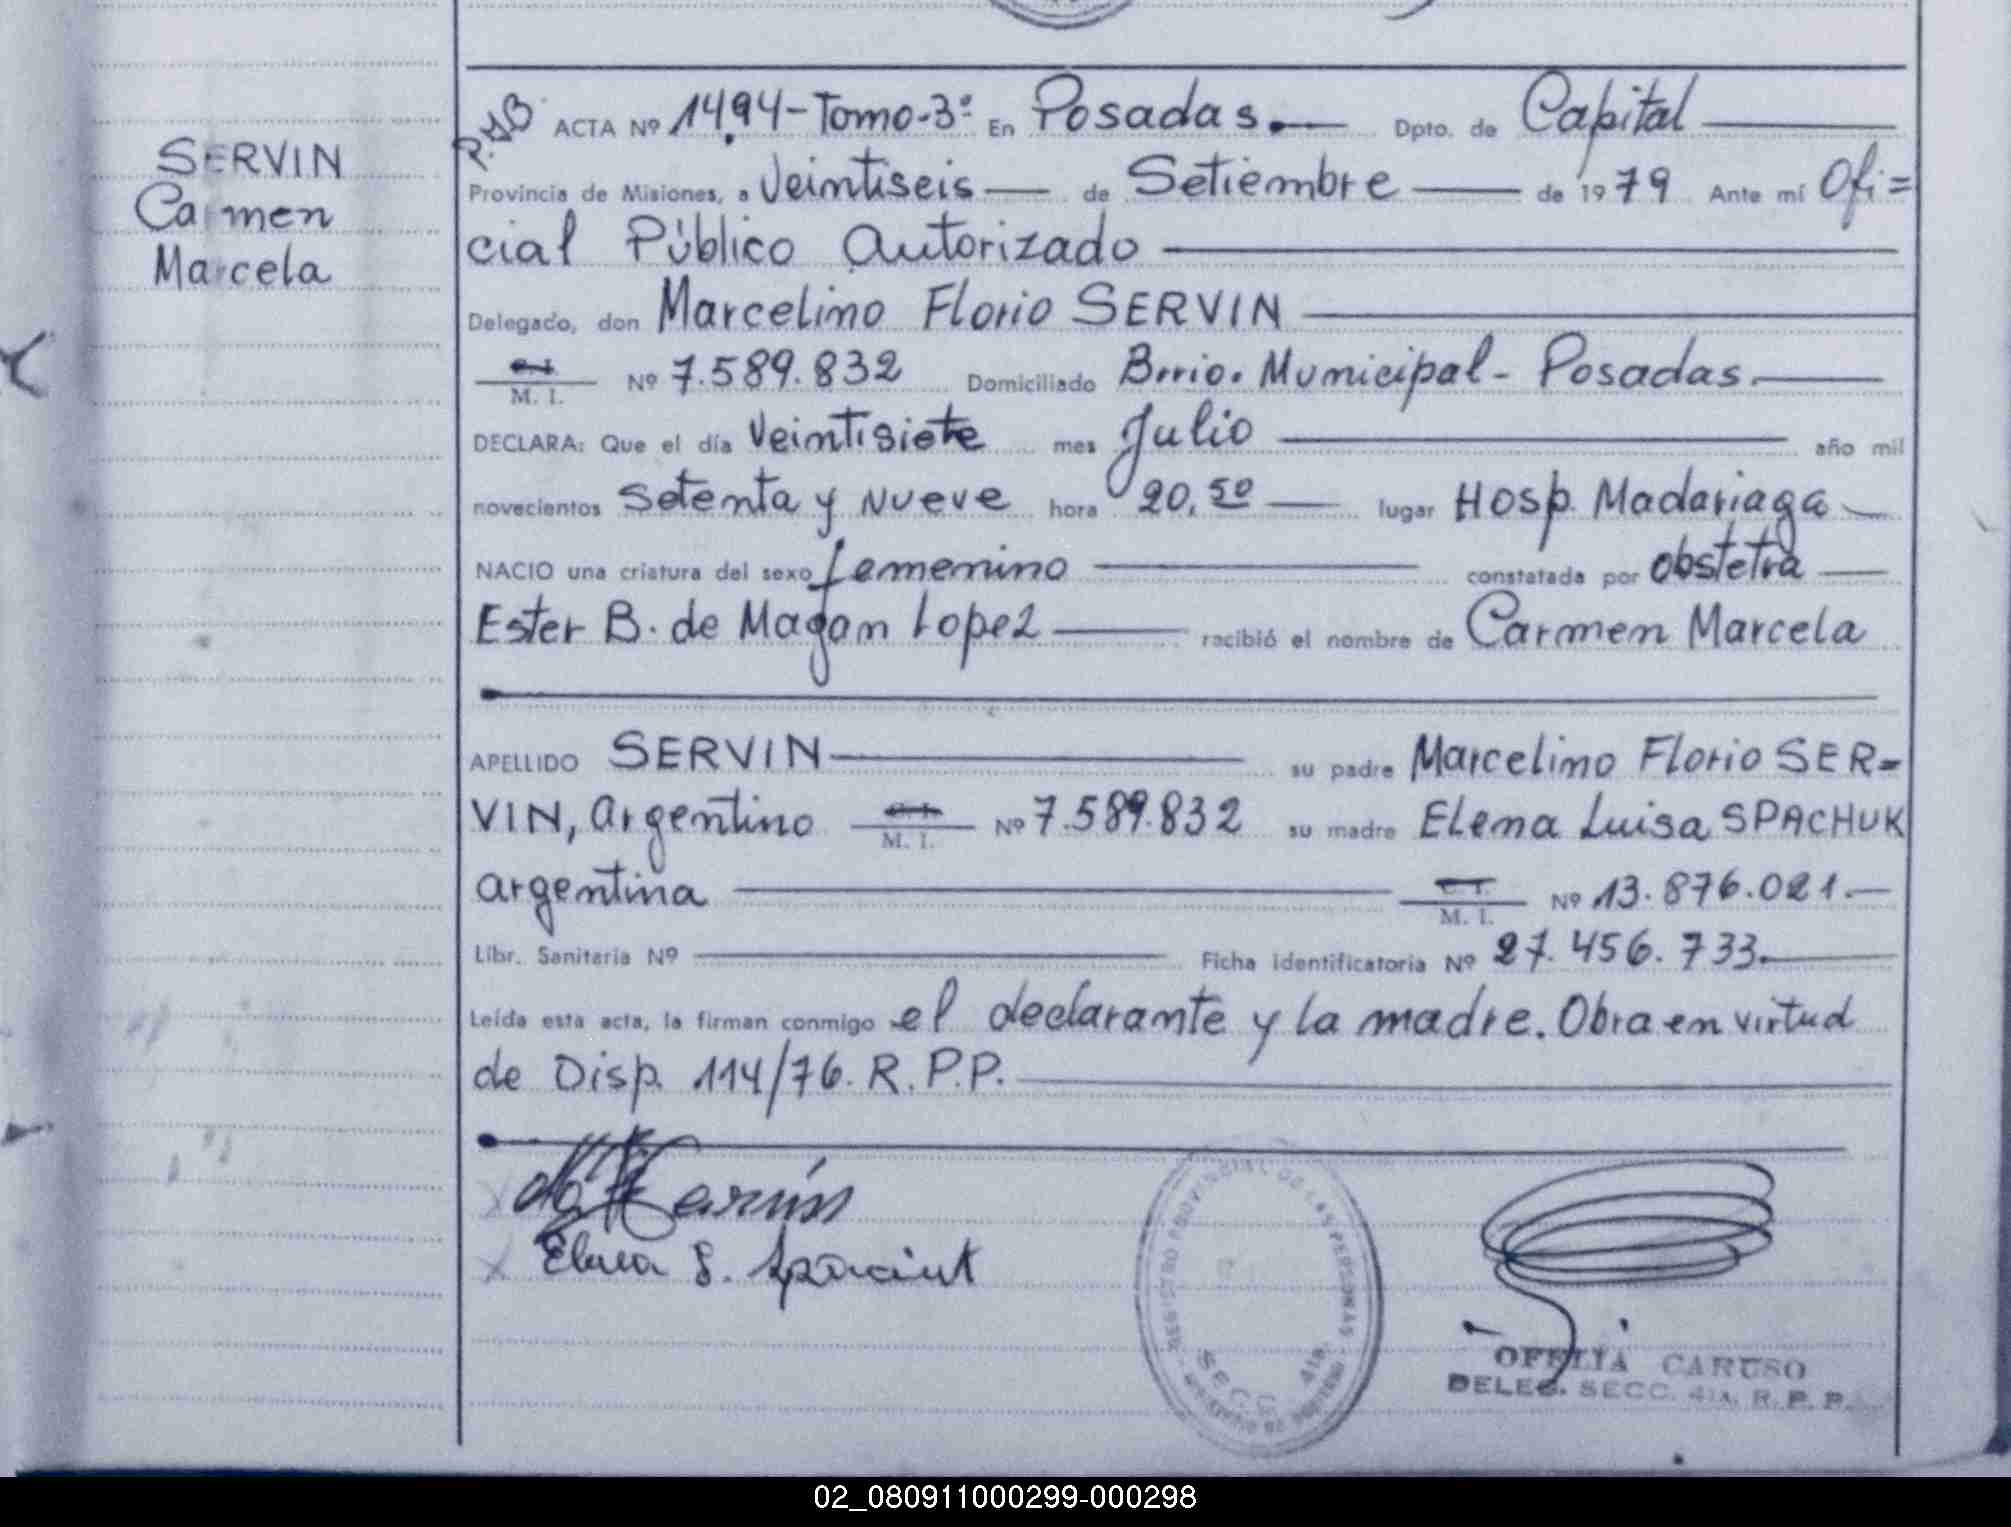 SERVIN
Carmen
Marcela
ACTA Nº 1494-Tomo-3º En Posadas.— Dpto. de Capital —
Provincia de Misiones, a Veintiseis — de Setiembre — de 1979 Ante mí Ofi=
cial Público Autorizado —
Delegado, don Marcelino Florio SERVIN —
M. I. Nº 7.589.832 Domiciliado Brrio. Municipal - Posadas.—
DECLARA: Que el día Veintisiete mes Julio — año mil
novecientos Setenta y Nueve hora 20,50 — lugar Hosp. Madariaga —
NACIO una criatura del sexo femenino — constatada por obstetra —
Ester B. de Magan Lopez — recibió el nombre de Carmen Marcela
APELLIDO SERVIN — su padre Marcelino Florio SER=
VIN, Argentino M. I. Nº 7.589.832 su madre Elena Luisa SPACHUK
argentina — M. I. Nº 13.876.021.—
Libr. Sanitaria Nº — Ficha identificatoria Nº 27.456.733.—
Leída esta acta, la firman conmigo el declarante y la madre. Obra en virtud
de Disp. 114/76. R.P.P. —
REGISTRO PROVINCIAL DE LAS PERSONAS
SECC. 4ta.
OFELIA CARUSO
DELEG. SECC. 4ta. R. P. P.
02_080911000299-000298